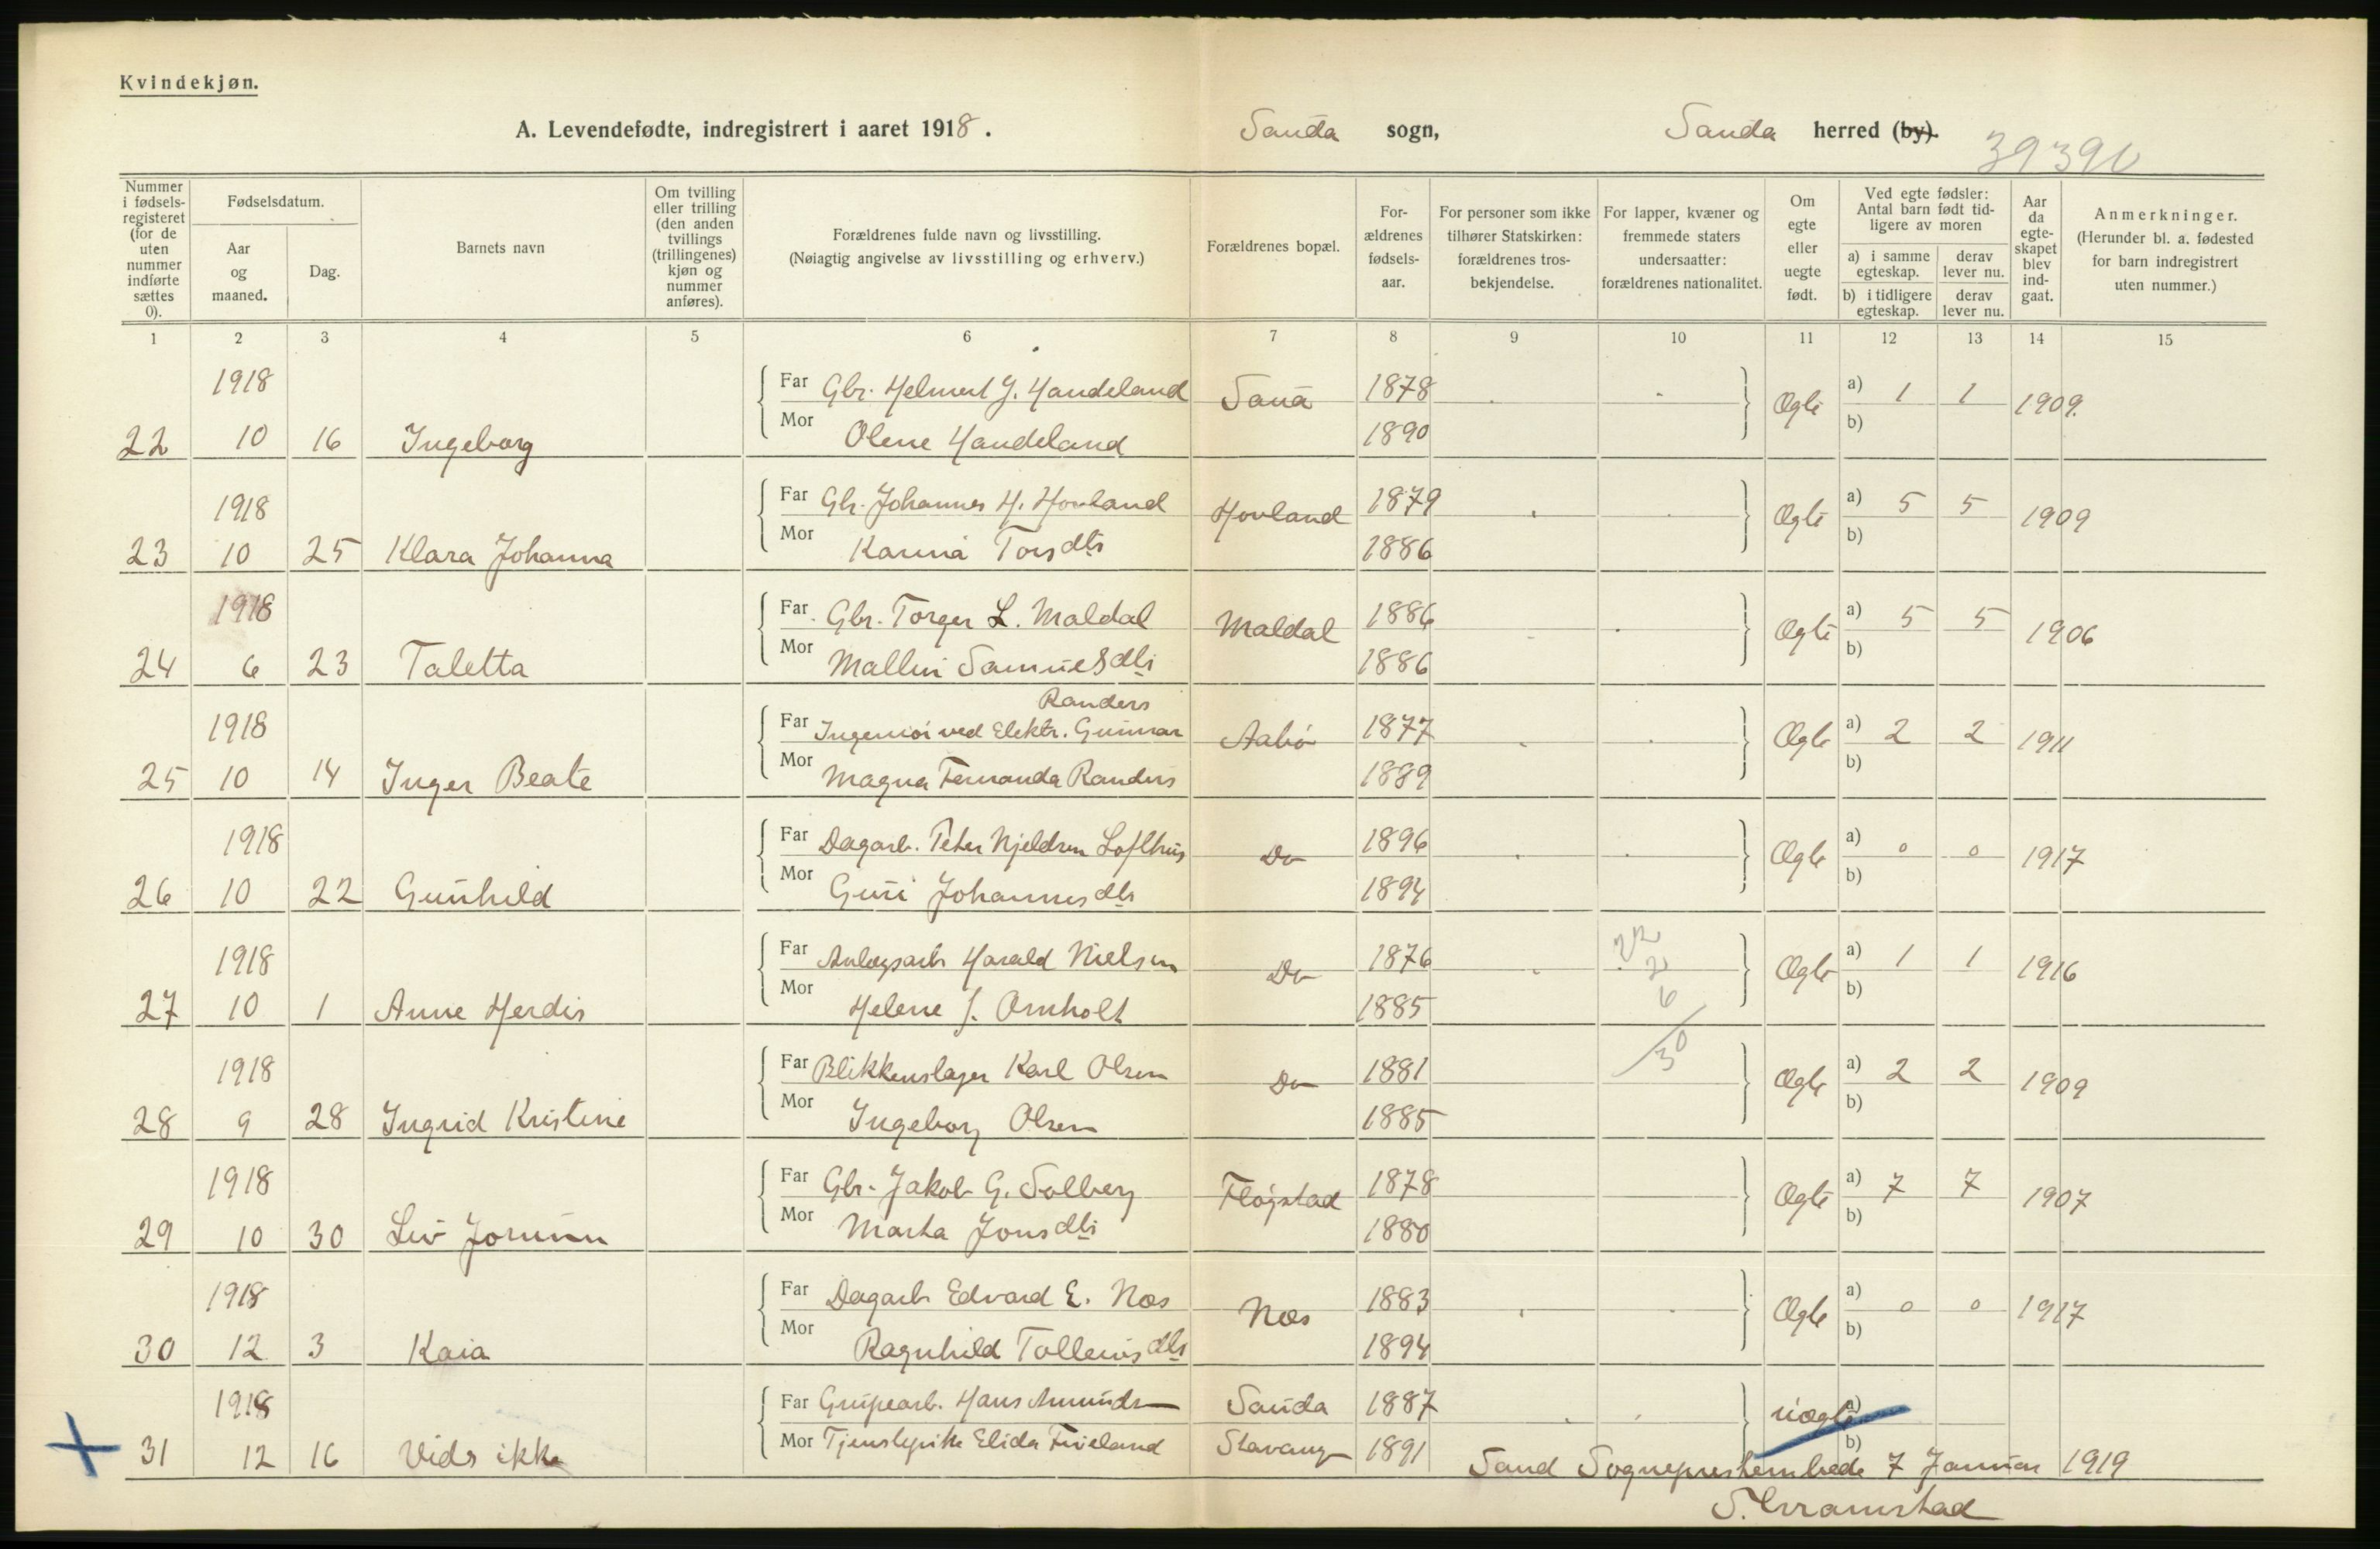 Kvindekjøn.
A. Levendefødte, indregistrert i aaret 1918. Sauda sogn, Sauda herred (by).
39390
Nummer i fødselsregisteret (for de uten nummer indførte sættes 0).
Fødselsdatum.
Aar og maaned.
Dag.
Barnets navn
Om tvilling eller trilling (den anden tvillings (trillingenes) kjøn og nummer anføres).
Forældrenes fulde navn og livsstilling.
(Nøiagtig angivelse av livsstilling og erhverv.)
Forældrenes bopæl.
Forældrenes fødselsaar.
For personer som ikke tilhører Statskirken: forældrenes trosbekjendelse.
For lapper, kvæner og fremmede staters undersaatter: forældrenes nationalitet.
Om egte eller uegte født.
Ved egte fødsler: Antal barn født tidligere av moren
a) i samme egteskap.
derav lever nu.
b) i tidligere egteskap.
derav lever nu.
Aar da egteskapet blev indgaat.
Anmerkninger.
(Herunder bl. a. fødested for barn indregistrert uten nummer.)
1 2 3 4 5 6 7 8 9 10 11 12 13 14 15
1918 Far Gbr. Helmert J. Handeland Saua 1878 Ægte a) 1 1 1909.
22 10 16 Ingeborg Mor Olene Handeland 1890 b)
1918 Far Gbr. Johannes H. Hovland Hovland 1879 Ægte a) 5 5 1909
23 10 25 Klara Johanna Mor Karina Torsdtr 1886 b)
1918 Far Gbr. Torger L. Maldal Maldal 1886 Ægte a) 5 5 1906
24 6 23 Taletta Mor Mallin Samuelsdtr 1886 b)
Randers
1918 Far Ingeniør ved Elektr. Gunnar Aabø 1877 Ægte a) 2 2 1911
25 10 14 Inger Beate Mor Magna Fernanda Randers 1889 b)
1918 Far Dagarb. Peter Njeldsen Lofthus Do 1896 Ægte a) 0 0 1917
26 10 22 Gunhild Mor Guri Johannesdtr 1894 b)
1918 Far Anlægsarb Harald Nielsen Do 1876 22 2 6 Ægte a) 1 1 1916
27 10 1 Anne Herdis Mor Helene J. Ornholt 1885 b)
30
1918 Far Blikkenslager Karl Olsen Do 1881 Ægte a) 2 2 1909
28 9 28 Ingrid Kristine Mor Ingeborg Olsen 1885 b)
1918 Far Gbr. Jakob G. Solberg Fløgstad 1878 Ægte a) 7 7 1907
29 10 30 Liv Jorunn Mor Marta Jonsdtr 1880 b)
1918 Far Dagarb Edvard E. Næs Næs 1883 Ægte a) 0 0 1917
30 12 3 Kaia Mor Ragnhild Tolleivsdtr 1894 b)
1918 Far Grupearb. Hans Amunds Sauda 1887 uægte a)
31 12 16 Vides ikke Mor Tjenstepike Elida Frøieland Stavanger 1891 b)
Sand Sogneprestembede 7 Januar 1919